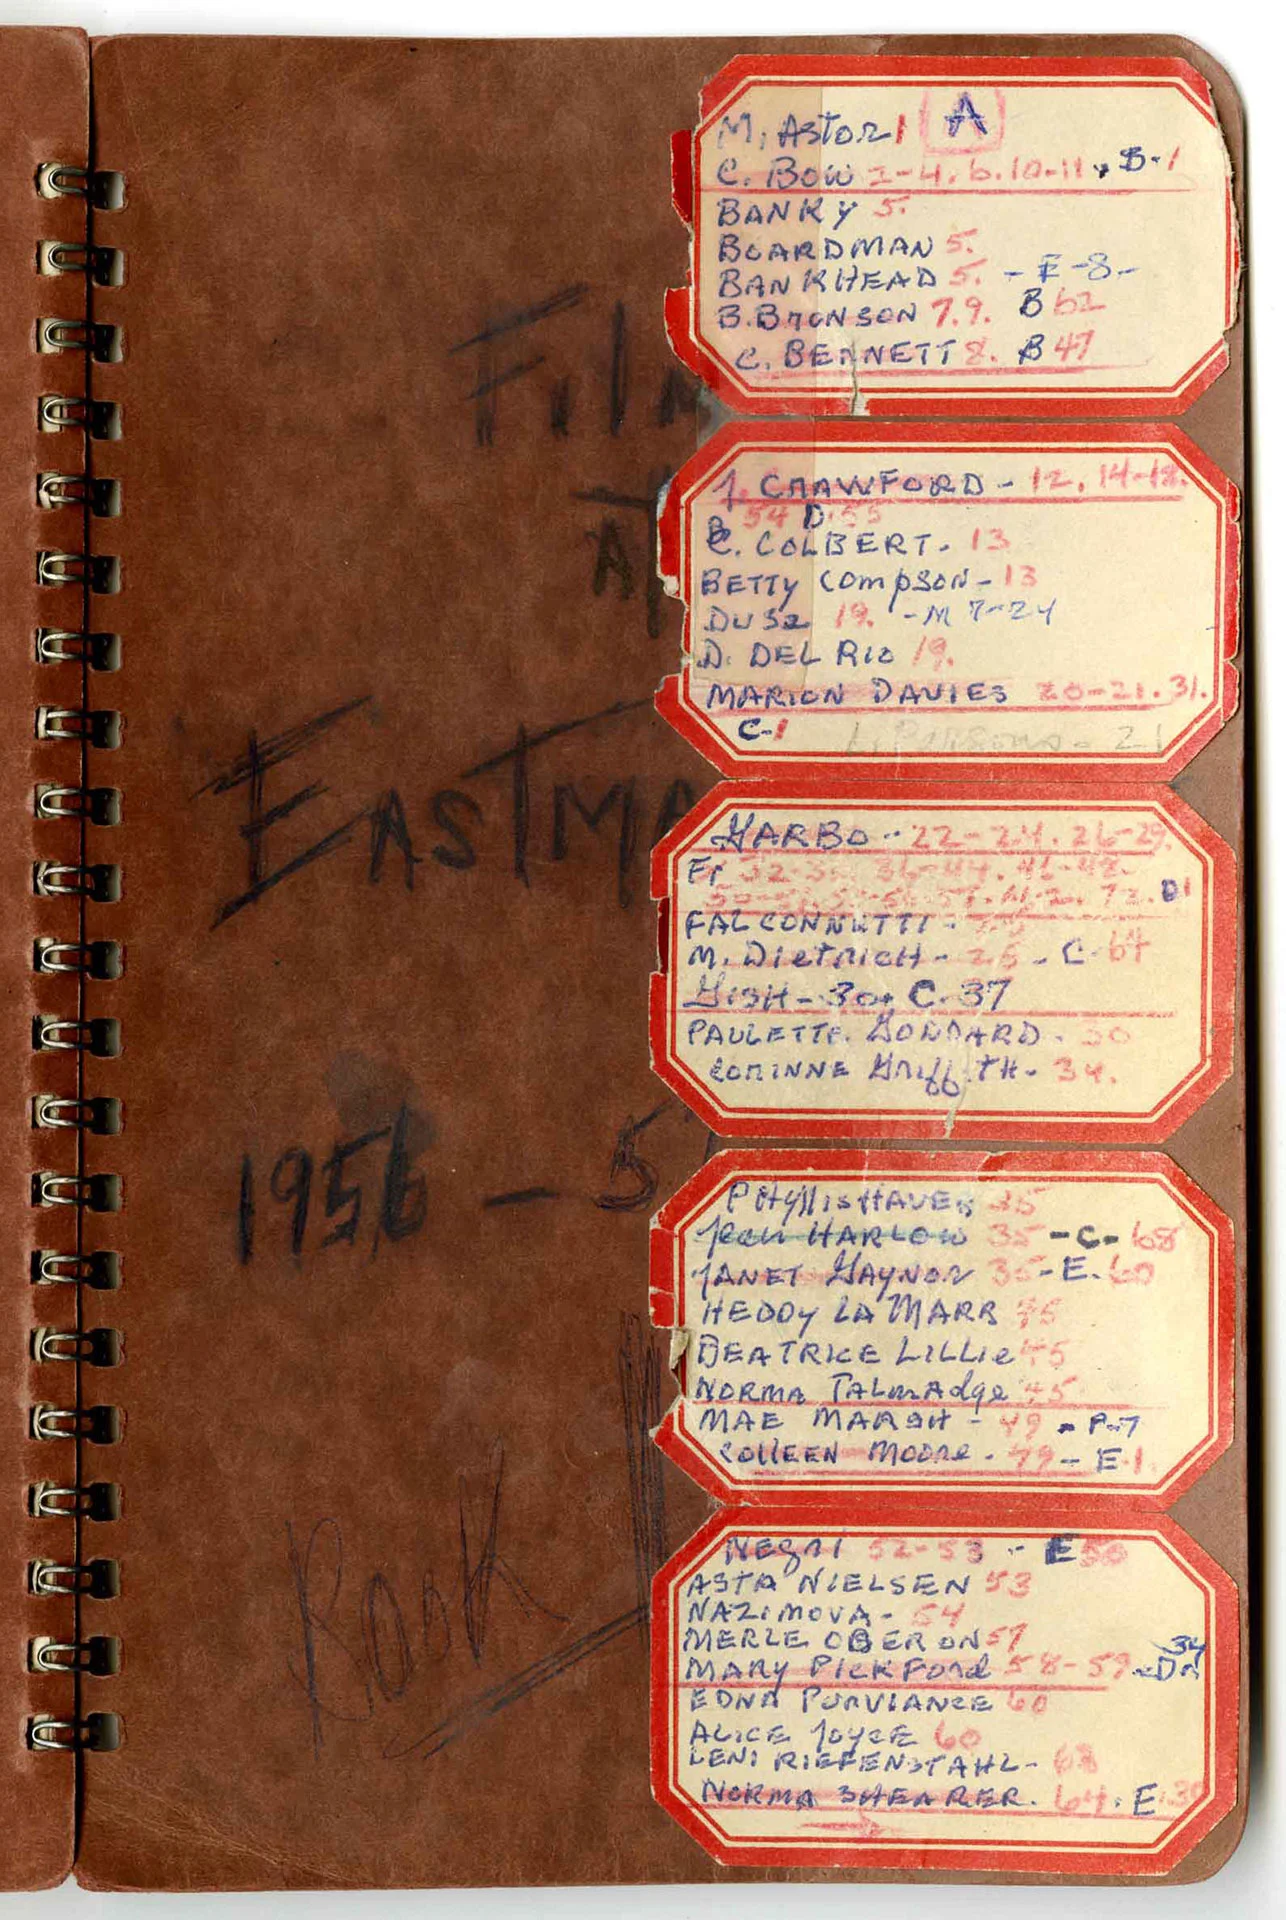 FILM
AT
EASTMA
1956 — 5
Book
M. Astor 1 A
C. Bow 2-4.6.10-11. B-1
BANKY 5.
BOARDMAN 5.
BANKHEAD 5. - E-8-
B. BRONSON 7.9. B 62
C. BENNETT 8. B 47
J. CRAWFORD - 12. 14-18.
B 54 D. 55
C. COLBERT. 13
BETTY Compson - 13
DUSE 19. - M 7-24
D. DEL RIO 19.
MARION DAVIES 20-21. 31.
C-1 L. Parsons - 21
GARBO -- 22-24. 26-29.
D1
FALCONNETTI -
M. DietricH - 25 - C-64
GISH - 30. C. 37
PAULETTE. GODDARD. 30
CORINNE GriffiTH - 34.
PHyllis HAVER 35
Jean HARLOW 35 - C- 68
JANET GAYNOR 35 - E. 60
HEDDY LA MARR 45
BEATRICE LILLIE 45
NORMA TALMAdge 45
MAE MARSH - 49 - P-7
COLLEEN MOORE. 49 - E 1.
NEGRI 52-53 - E 50
ASTA NIELSEN 53
NAZIMOVA - 54
MERLE OBERON 57
MARY PICKFORD 58-59 -D 34
EDNA PURVIANCE 60
ALICE JOYCE 60
LENI RIEFENSTAHL - 63
NORMA SHEARER. 64. E. 30